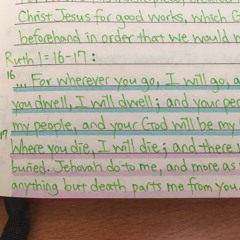 Christ Jesus for good works, which G
beforehand in order that we would w
Ruth 1:16-17:
16
... For wherever you go, I will go, a
you dwell, I will dwell; and your peo
my people, and your God will be my
17
Where you die, I will die; and there w
buried. Jehovah do to me, and more as
anything but death parts me from you.